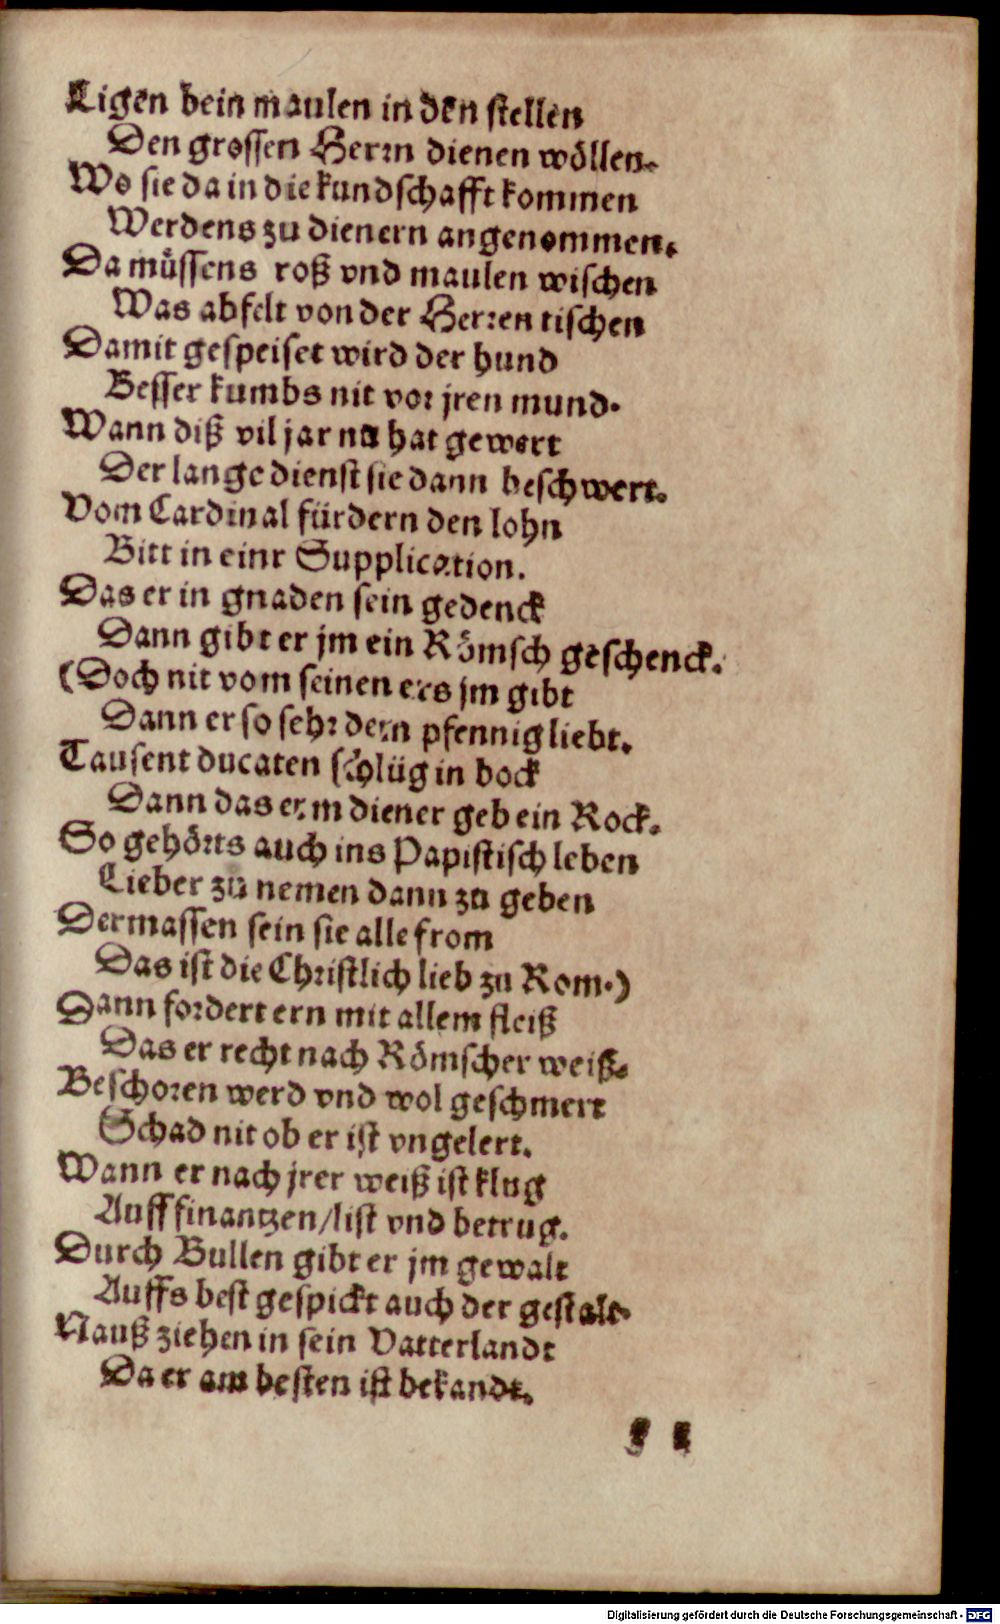 Ligen bein maulen in den stellen
Den grossen Herrn dienen wöllen.
Wo sie da in die kundschafft kommen
Werdens zu dienern angenommen.
Da müssens roß vnd maulen wischen
Was abfelt von der Herren tischen
Damit gespeiset wird der hund
Besser kumbs nit vor jren mund.
Wann diß vil jar nu hat gewert
Der lange dienst sie dann beschwert.
Vom Cardinal fürdern den lohn
Bitt in einr Supplication.
Das er in gnaden sein gedenck
Dann gibt er jm ein Römsch geschenck.
(Doch nit vom seinen ers jm gibt
Dann er so sehr den pfennig liebt.
Tausent ducaten schlüg in bock
Dann das erm diener geb ein Rock.
So gehörts auch ins Papistisch leben
Lieber zu nemen dann zu geben
Dermassen sein sie alle from
Das ist die Christlich lieb zu Rom.)
Dann fordert ern mit allem fleiß
Das er recht nach Römscher weiß.
Beschoren werd vnd wol geschmert
Schad nit ob er ist vngelert.
Wann er nach jrer weiß ist klug
Auff finantzen/list vnd betrug.
Durch Bullen gibt er jm gewalt
Auffs best gespickt auch der gestalt.
Nauß ziehen in sein Vatterlandt
Da er am besten ist bekandt.
Digitalisierung gefördert durch die Deutsche Forschungsgemeinschaft - DFG